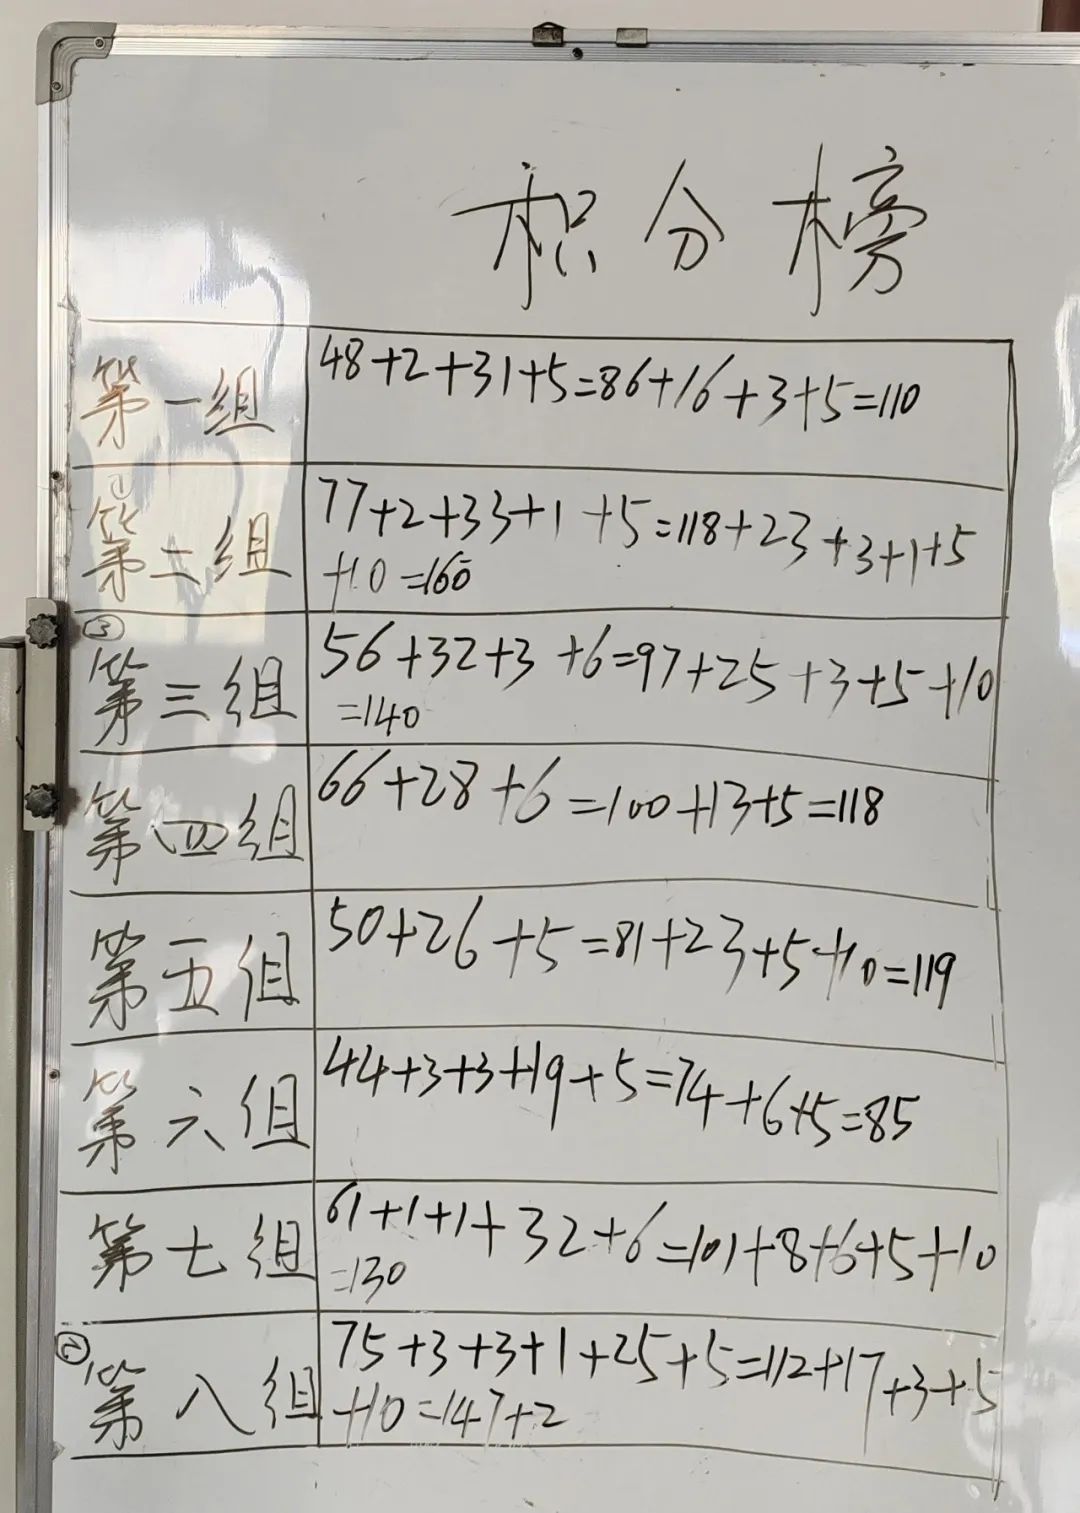 积分榜
第一组 48+2+31+5=86+16+3+5=110
①
第二组 77+2+33+1+5=118+23+3+1+5
+10=160
③
第三组 56+32+3+6=97+25+3+5+10
=140
第四组 66+28+6=100+13+5=118
第五组 50+26+5=81+23+5+10=119
第六组 44+3+3+19+5=74+6+5=85
第七组 61+1+1+32+6=101+8+6+5+10
=130
②
第八组 75+3+3+1+25+5=112+17+3+5
+10=147+2